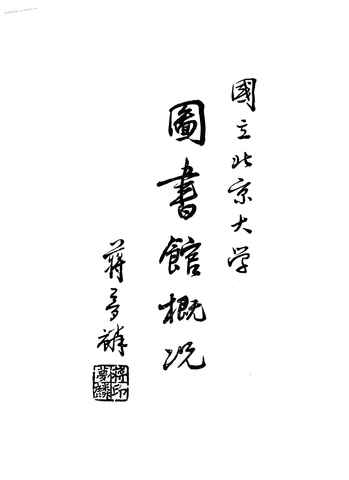 國立北京大学
圖書館概况
蔣夢麟
蔣印
夢麟